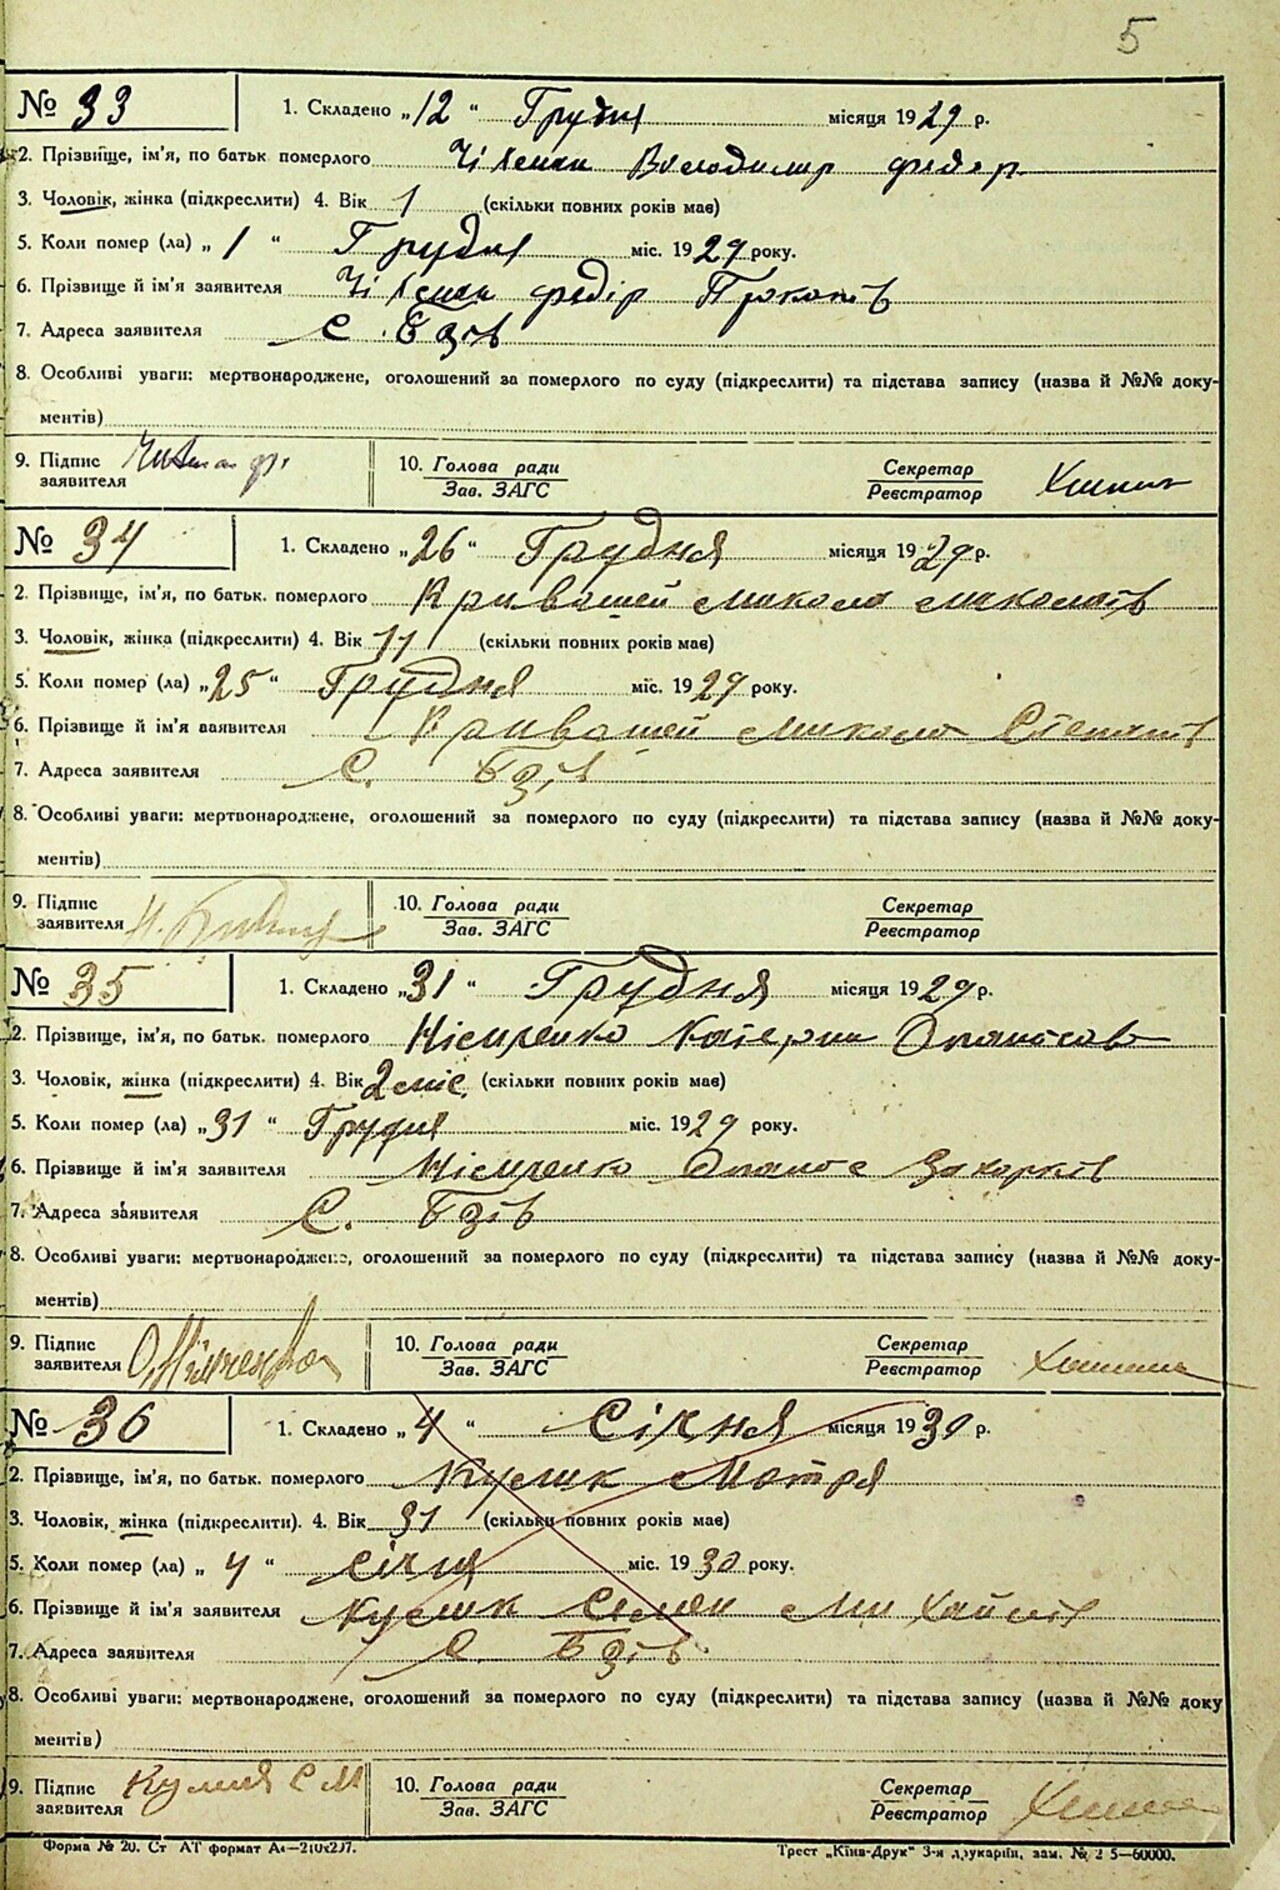 5
№ 33
1. Складено „12“ Грудня місяця 1929 р.
2. Прізвище, ім'я, по батьк померлого Володимир Федор
3. Чоловік, жінка (підкреслити) 4. Вік 1 (скільки повних років має)
5. Коли помер (ла) „1“ Грудня міс. 1929 року.
6. Прізвище й ім'я заявителя Федір Прокопів
7. Адреса заявителя С. Бзів
8. Особливі уваги: мертвонароджене, оголошений за померлого по суду (підкреслити) та підстава запису (назва й №№ доку-
ментів)
9. Підпис заявителя
10. Голова ради
Зав. ЗАГС
Секретар
Реєстратор
№ 34
1. Складено „26“ Грудня місяця 1929 р.
2. Прізвище, ім'я, по батьк. померлого Кривошей Микола Миколаїв
3. Чоловік, жінка (підкреслити) 4. Вік 11 (скільки повних років має)
5. Коли помер (ла) „25“ Грудня міс. 1929 року.
6. Прізвище й ім'я заявителя Кривошей Микола Степанів
7. Адреса заявителя С. Бзів
8. Особливі уваги: мертвонароджене, оголошений за померлого по суду (підкреслити) та підстава запису (назва й №№ доку-
ментів)
9. Підпис заявителя
10. Голова ради
Зав. ЗАГС
Секретар
Реєстратор
№ 35
1. Складено „31“ Грудня місяця 1929 р.
2. Прізвище, ім'я, по батьк. померлого Німченко Катерина Опанасов
3. Чоловік, жінка (підкреслити) 4. Вік 2 міс. (скільки повних років має)
5. Коли помер (ла) „31“ Грудня міс. 1929 року.
6. Прізвище й ім'я заявителя Німченко Опанас Захарків
7. Адреса заявителя С. Бзів
8. Особливі уваги: мертвонароджене, оголошений за померлого по суду (підкреслити) та підстава запису (назва й №№ доку-
ментів)
9. Підпис заявителя О. Німченко
10. Голова ради
Зав. ЗАГС
Секретар
Реєстратор
№ 36
1. Складено „4“ Січня місяця 1930 р.
2. Прізвище, ім'я, по батьк. померлого Кулик Мотря
3. Чоловік, жінка (підкреслити). 4. Вік 31 (скільки повних років має)
5. Коли помер (ла) „4“ Січня міс. 1930 року.
6. Прізвище й ім'я заявителя Кулик Семен Михайлів
7. Адреса заявителя С. Бзів
8. Особливі уваги: мертвонароджене, оголошений за померлого по суду (підкреслити) та підстава запису (назва й №№ доку
ментів)
9. Підпис заявителя С М
10. Голова ради
Зав. ЗАГС
Секретар
Реєстратор
Форма № 20. Ст АТ формат А4—210х297.
Трест „Київ-Друк“ 3-я друкарня, зам. № 2 5—60000.